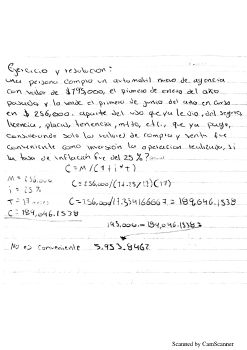 Ejercicio y resolucion:
Una persona compro un automobil nuevo de agencia
con valor de $195,000, el primero de enero del año
pasado y lo vende el primero de junio del año en curso
en $256,000. aparte del uso que ya le dio, del seguro,
licencia, placas, tenencia, mtto, etc., que ya pago,
considerando solo los valores de compra y venta fue
conveniente como inversión la operacion realizada, si
la tasa de inflación fue del 25%? anual
C=M/(1+i*T)
M= 256,000
C=256,000/(1+.25/12)(17)
i= 25%
T= 17 meses
C=256,000/1.354166667 = 189,046.1538
C= 189,046.1538
195,000 - 189,046.1538
No es conveniente 5,953.8462
Scanned by CamScanner